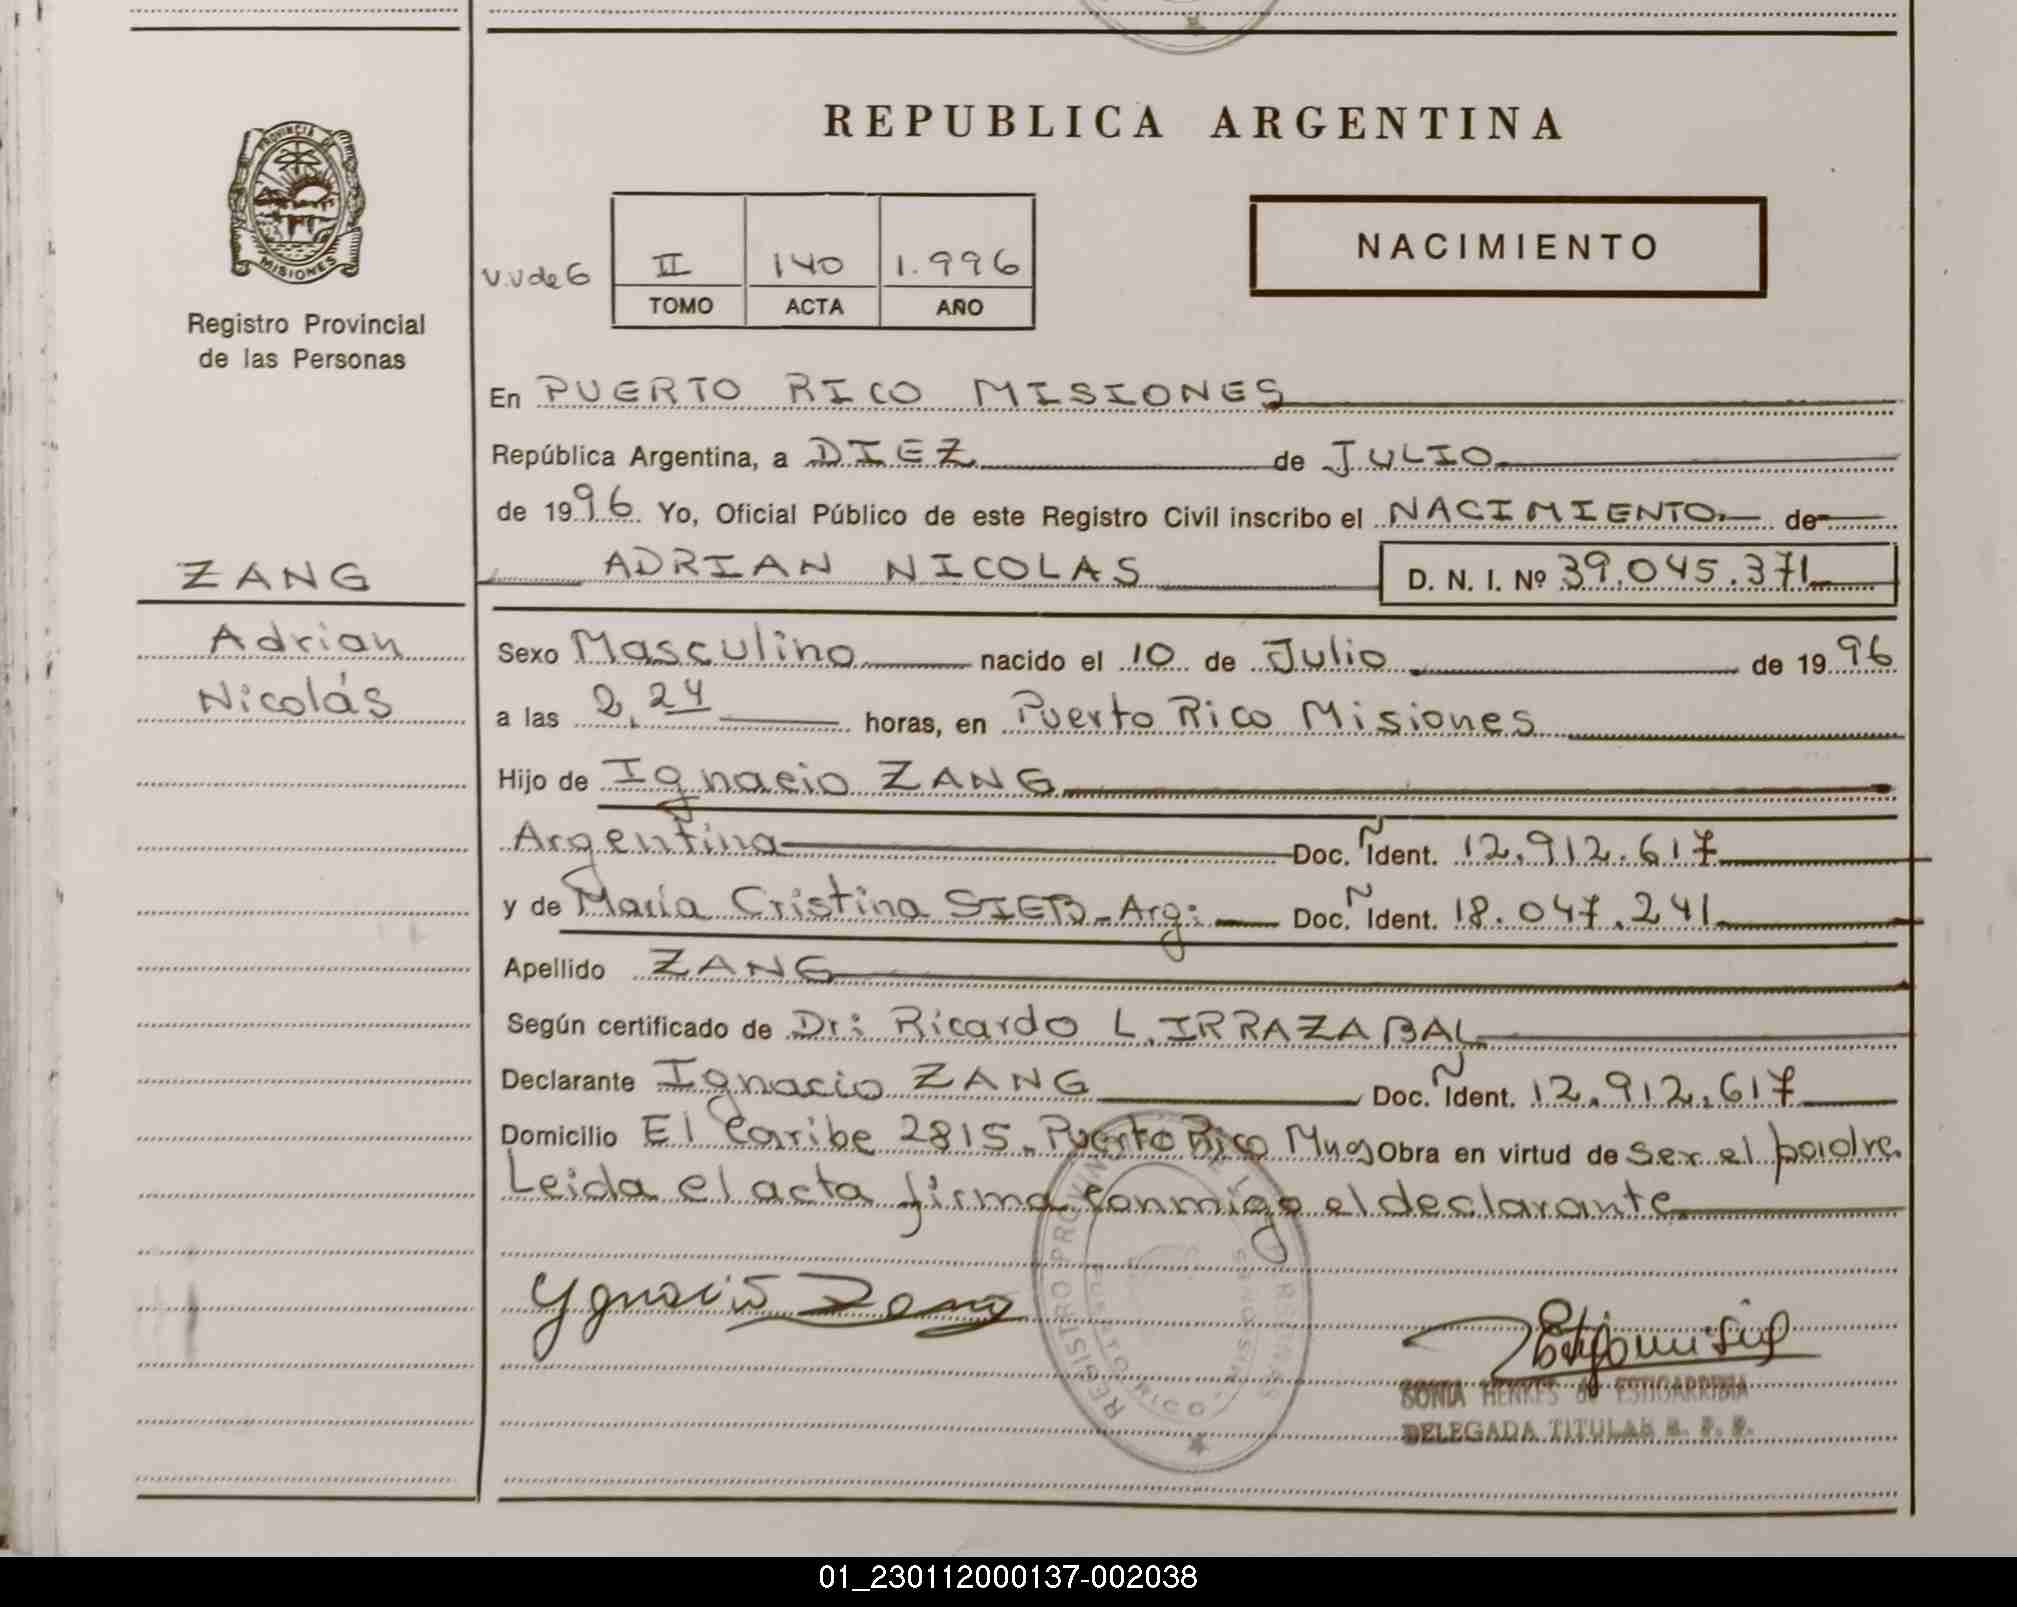 REPUBLICA ARGENTINA
PROVINCIA DE MISIONES
Registro Provincial
de las Personas
V.V de 6
II 140 1.996
TOMO ACTA AÑO
NACIMIENTO
En PUERTO RICO MISIONES
República Argentina, a DIEZ de JULIO
de 1996 Yo, Oficial Público de este Registro Civil inscribo el NACIMIENTO.— de
ADRIAN NICOLAS D. N. I. Nº 39.045.371
ZANG
Adrian
Nicolás
Sexo Masculino nacido el 10 de Julio de 1996
a las 2,24 horas, en Puerto Rico Misiones
Hijo de Ignacio ZANG
Argentina Doc. Ñ Ident. 12.912.617
y de María Cristina SIEB-Arg: Doc. Ñ Ident. 18.047.241
Apellido ZANG
Según certificado de Dr: Ricardo L. IRRAZABAL
Declarante Ignacio ZANG Doc. Ñ Ident. 12.912.617
Domicilio El Caribe 2815. Puerto Rico Mnes Obra en virtud de ser el padre.
Leida el acta firma conmigo el declarante
Ygnacio Zang
REGISTRO PROVINCIAL DE LAS PERSONAS
PUERTO RICO - MISIONES
SONIA HENKES de ESTIGARRIBIA
DELEGADA TITULAR R. P. P.
01_230112000137-002038